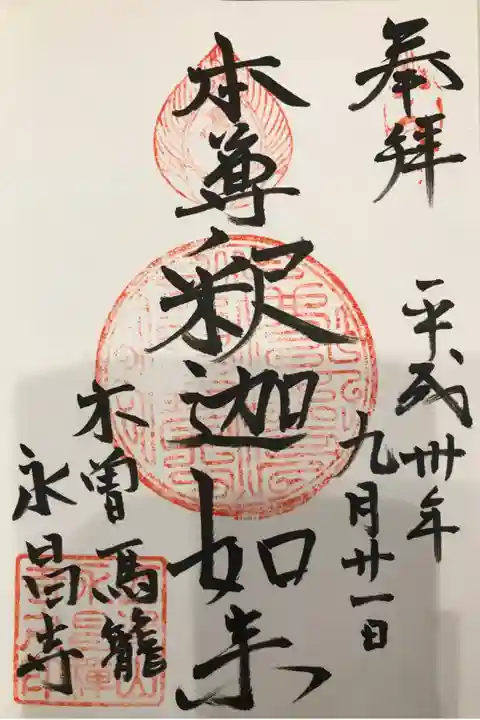 奉拝
平成卅年
九月廿一日
本尊釈迦如来
木曽馬籠
永昌寺